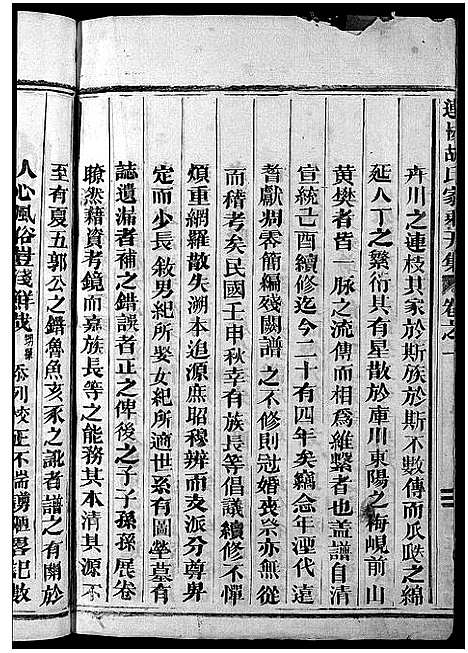 蓮塘胡氏家乘 卷之一
卉川之連枝其家於斯族於斯不數傳而瓜瓞之綿
延人丁之繁衍其有星散於庫川東陽之梅峴前山
黄樊者皆一脉之流傳而相爲維繫者也盖譜自清
宣統己酉續修迄今二十有四年矣竊念年湮代遠
耆獻凋零簡編殘闕譜之不修則冠婚丧祭亦無從
而稽考矣民國壬申秋幸有族長等倡議續修不憚
煩重網羅散失溯本追源庶昭穆辨而支派分尊卑
定而少長敘男紀所娶女紀所適世系有圖塋墓有
誌遺漏者補之錯誤者正之俾後之子子孫孫展卷
瞭然藉資考鏡而嘉族長等之能務其本清其源不
至有夏五郭公之錯魯魚亥豕之訛者譜之有關於
人心風俗豈淺鮮哉 忝列校正不耑謭陋畧記數